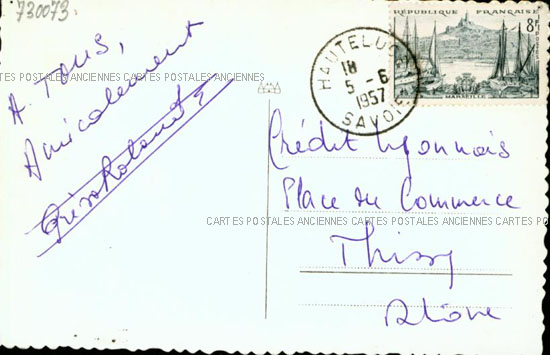 730073.
A Tous,
Amicalement
RÉPUBLIQUE FRANÇAISE
8F
MARSEILLE
HAUTELUCE
18
5-6
1957
SAVOIE
CARTES POSTALES ANCIENNES CARTES POSTALES ANCIENNES CARTES POSTALES
Crédit Lyonnais
Place du Commerce
CARTES POSTALES ANCIENNES CARTES POSTALES ANCIENNES CARTES P
Thizy
Rhône